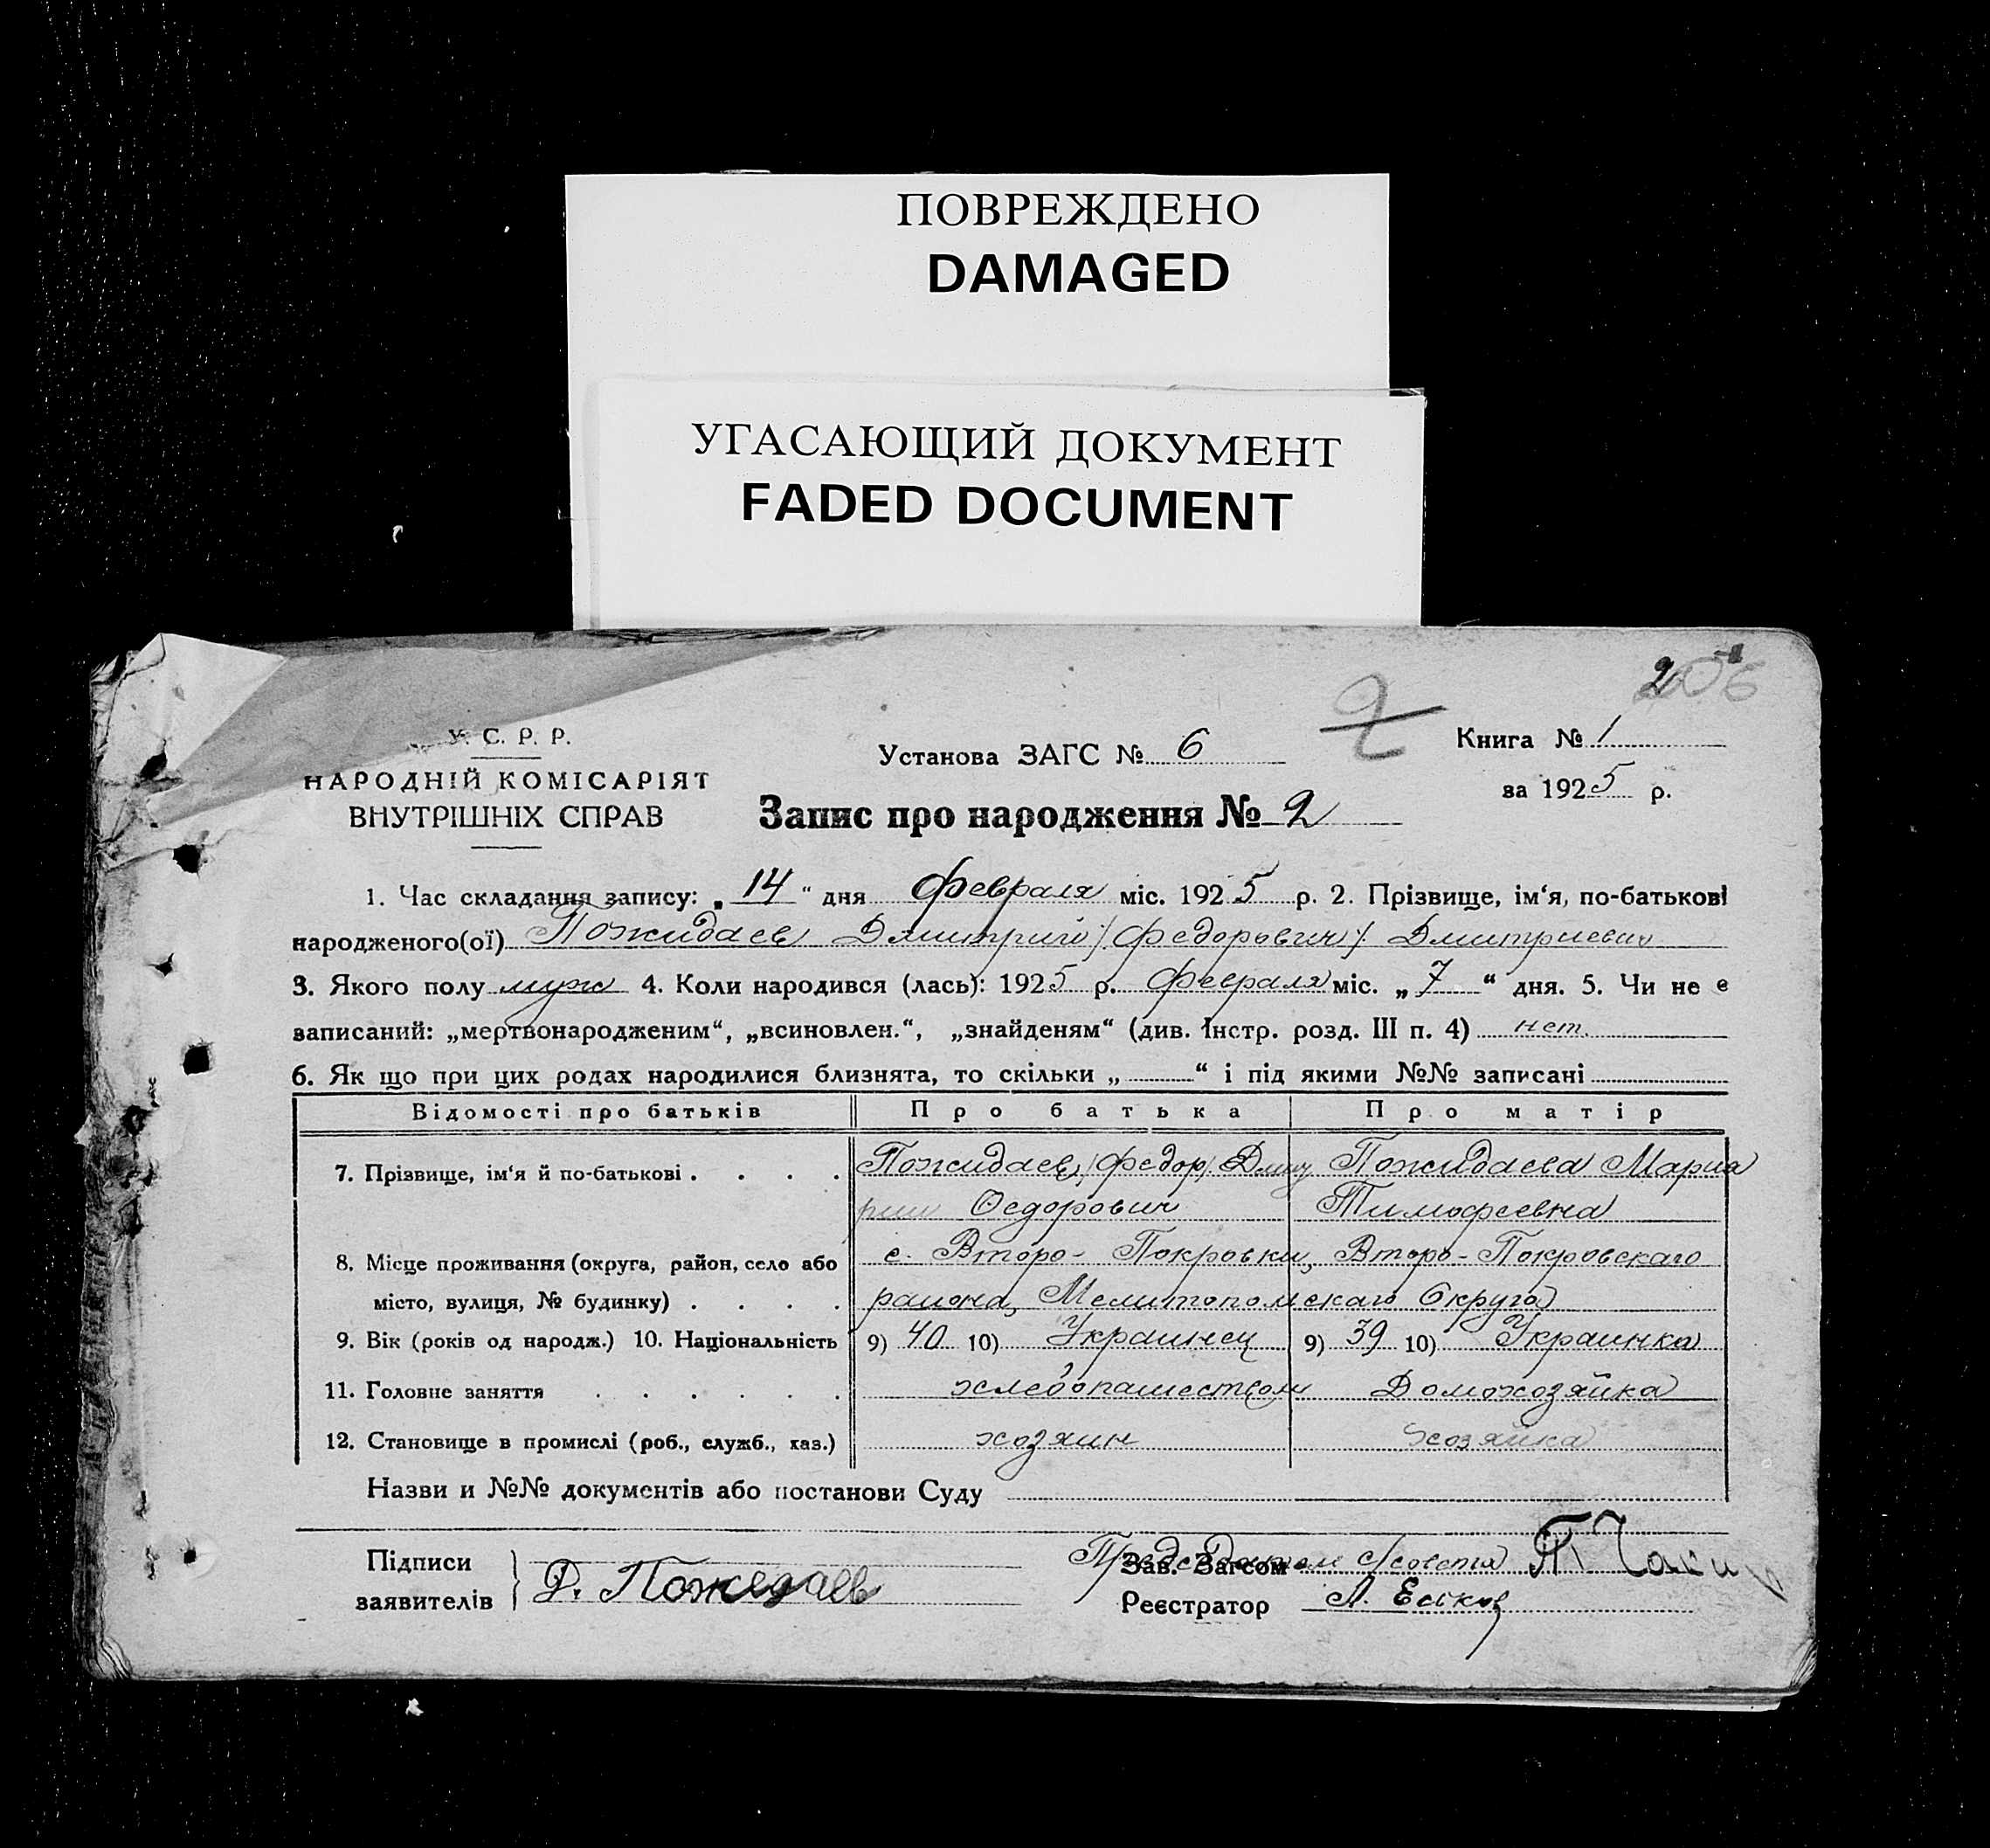 ПОВРЕЖДЕНО
DAMAGED
УГАСАЮЩИЙ ДОКУМЕНТ
FADED DOCUMENT
2
У. С. Р. Р.
НАРОДНІЙ КОМІСАРІЯТ
ВНУТРІШНІХ СПРАВ
Установа ЗАГС № 6
Книга № 1
за 1925 р.
Запис про народження № 2
1. Час складання запису: „14“ дня Февраля міс. 1925 р. 2. Прізвище, ім‘я, по-батькові
народженого(ої) Пожидаев Дмитрий /Федорович/ Дмитриевич
3. Якого полу муж 4. Коли народився (лась): 1925 р. Февраля міс. „7“ дня. 5. Чи не є
записаний: „мертвонародженим“, „всиновлен.“, „знайденям“ (див. Інстр. розд. III п. 4) нет.
6. Як що при цих родах народилися близнята, то скільки „ “ і під якими №№ записані
Відомості про батьків Про батька Про матір
7. Прізвище, ім‘я й по-батькові . . . . Пожидаев /Федор/ Дмит Пожидаева Мария
рий Федорович Тимофеевна
8. Місце проживання (округа, район, село або с. Второ-Покровки, Второ-Покровскаго
місто, вулиця, № будинку) . . . . района, Мелитопольскаго Округа
9. Вік (років од народж.) 10. Національність 9) 40 10) Украинец 9) 39 10) Украинка
11. Головне заняття . . . . . . хлебопашеством Домохозяйка
12. Становище в промислі (роб., служб., хаз.) хозяин Хозяйка
Назви и №№ документів або постанови Суду
Підписи
заявителів } Д. Пожедаев
Председатель с/совета
Зав. Загсом
Реєстратор А.